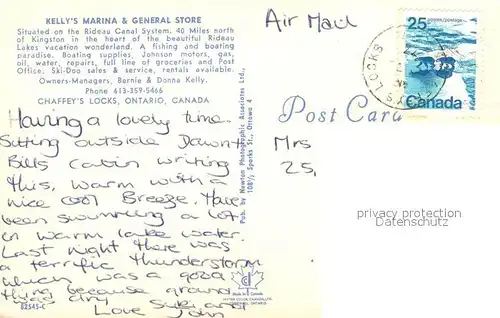 KELLY'S MARINA & GENERAL STORE
Situated on the Rideau Canal System. 40 Miles north
of Kingston in the heart of the beautiful Rideau
Lakes vacation wonderland. A fishing and boating
paradise. Boating supplies, Johnson motors, gas,
oil, water, repairs, full line of groceries and Post
Office. Ski-Doo sales & service, rentals available.
Owners-Managers, Bernie & Donna Kelly.
Phone 613-359-5466
CHAFFEY'S LOCKS, ONTARIO, CANADA
Having a lovely time.
Sitting outside Dawn +
Bills cabin writing
this, warm with a
nice cool Breeze. Have
been swimming a lot
in warm lake water.
Last night there was
a terrific thunderstorm
which was a good
thing because ground
was dry
Love John
82545-C
Pub. by Newton Photographic Associates Ltd.,
100½ Sparks St., Ottawa 4
Made in Canada
Air Mail
25
postes/postage
Canada
LOCKS
Post Card
Mrs
25,
privacy protection
Datenschutz